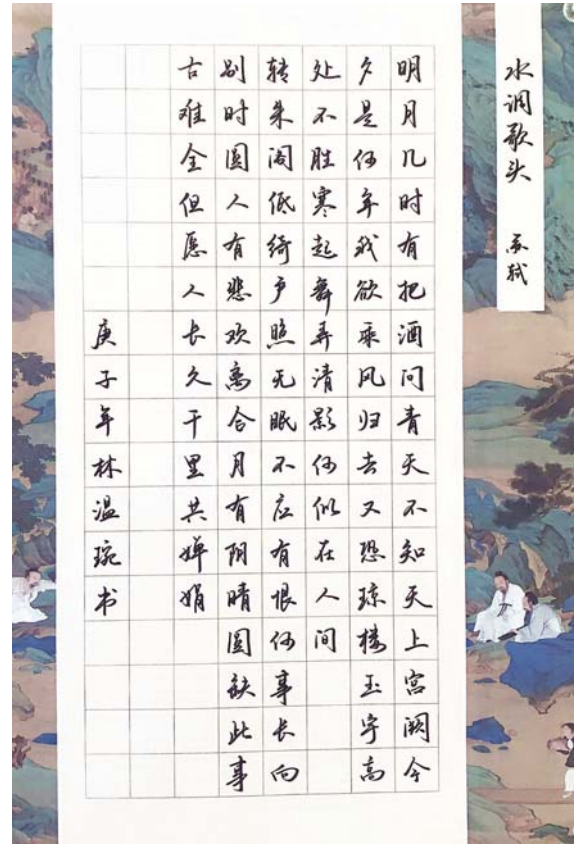 水调歌头 苏轼
明月几时有把酒问青天不知天上宫阙今
夕是何年我欲乘风归去又恐琼楼玉宇高
处不胜寒起舞弄清影何似在人间
转朱阁低绮户照无眠不应有恨何事长向
别时圆人有悲欢离合月有阴晴圆缺此事
古难全但愿人长久千里共婵娟
庚子年林温琬书